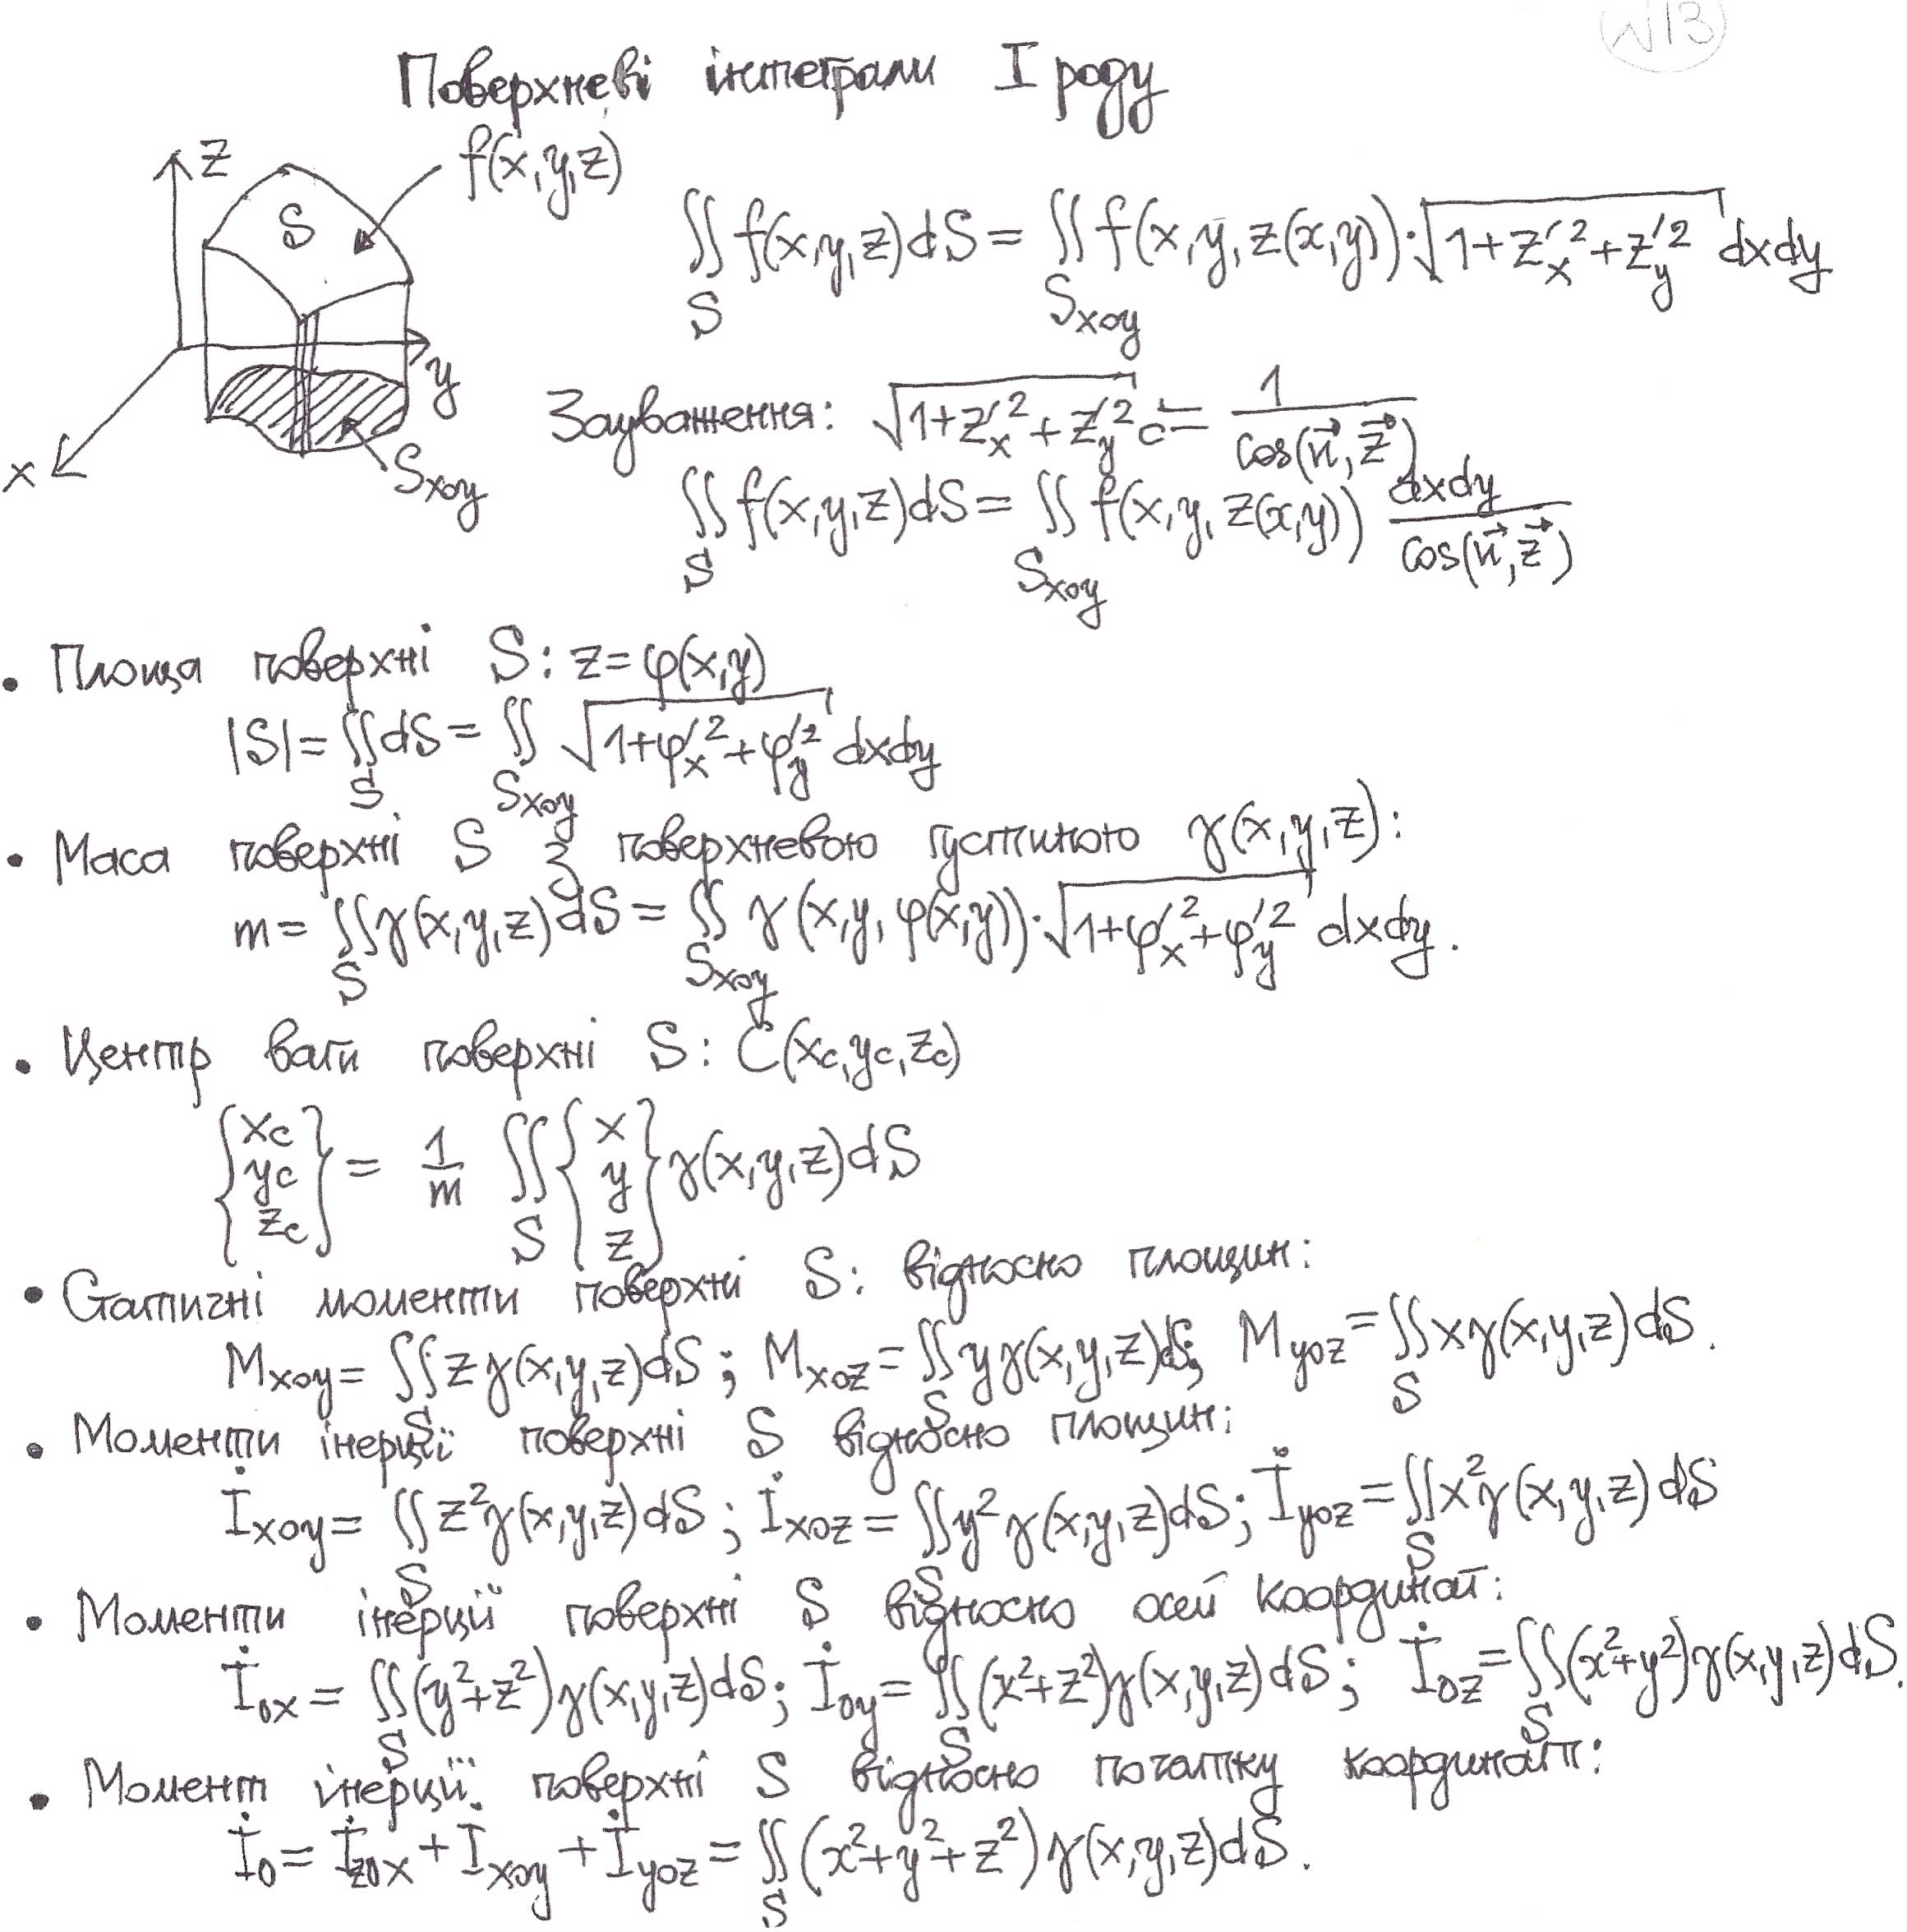 N13
Поверхневі інтеграли I роду
z
S
f(x,y,z)
y
x
Sxoy
∬_S f(x,y,z)dS = ∬_{Sxoy} f(x,y,z(x,y))·√(1+z'_x²+z'_y²) dxdy
Зауваження: √(1+z'_x²+z'_y²) = 1/cos(n⃗,z⃗)
∬_S f(x,y,z)dS = ∬_{Sxoy} f(x,y,z(x,y)) dxdy/cos(n⃗,z⃗)
• Площа поверхні S: z=φ(x,y)
|S| = ∬_S dS = ∬_{Sxoy} √(1+φ'_x²+φ'_y²) dxdy
• Маса поверхні S з поверхневою густиною γ(x,y,z):
m = ∬_S γ(x,y,z)dS = ∬_{Sxoy} γ(x,y,φ(x,y))·√(1+φ'_x²+φ'_y²) dxdy.
• Центр ваги поверхні S: C(xc,yc,zc)
{xc yc zc} = 1/m ∬_S {x y z} γ(x,y,z)dS
• Статичні моменти поверхні S: відносно площин:
Mxoy = ∬_S zγ(x,y,z)dS; Mxoz = ∬_S yγ(x,y,z)dS; Myoz = ∬_S xγ(x,y,z)dS.
• Моменти інерції поверхні S відносно площин:
İxoy = ∬_S z²γ(x,y,z)dS; İxoz = ∬_S y²γ(x,y,z)dS; İyoz = ∬_S x²γ(x,y,z)dS
• Моменти інерції поверхні S відносно осей координат:
İox = ∬_S (y²+z²)γ(x,y,z)dS; İoy = ∬_S (x²+z²)γ(x,y,z)dS; İoz = ∬_S (x²+y²)γ(x,y,z)dS.
• Момент інерції поверхні S відносно початку координат:
İo = İzox + İxoy + İyoz = ∬_S (x²+y²+z²)γ(x,y,z)dS.